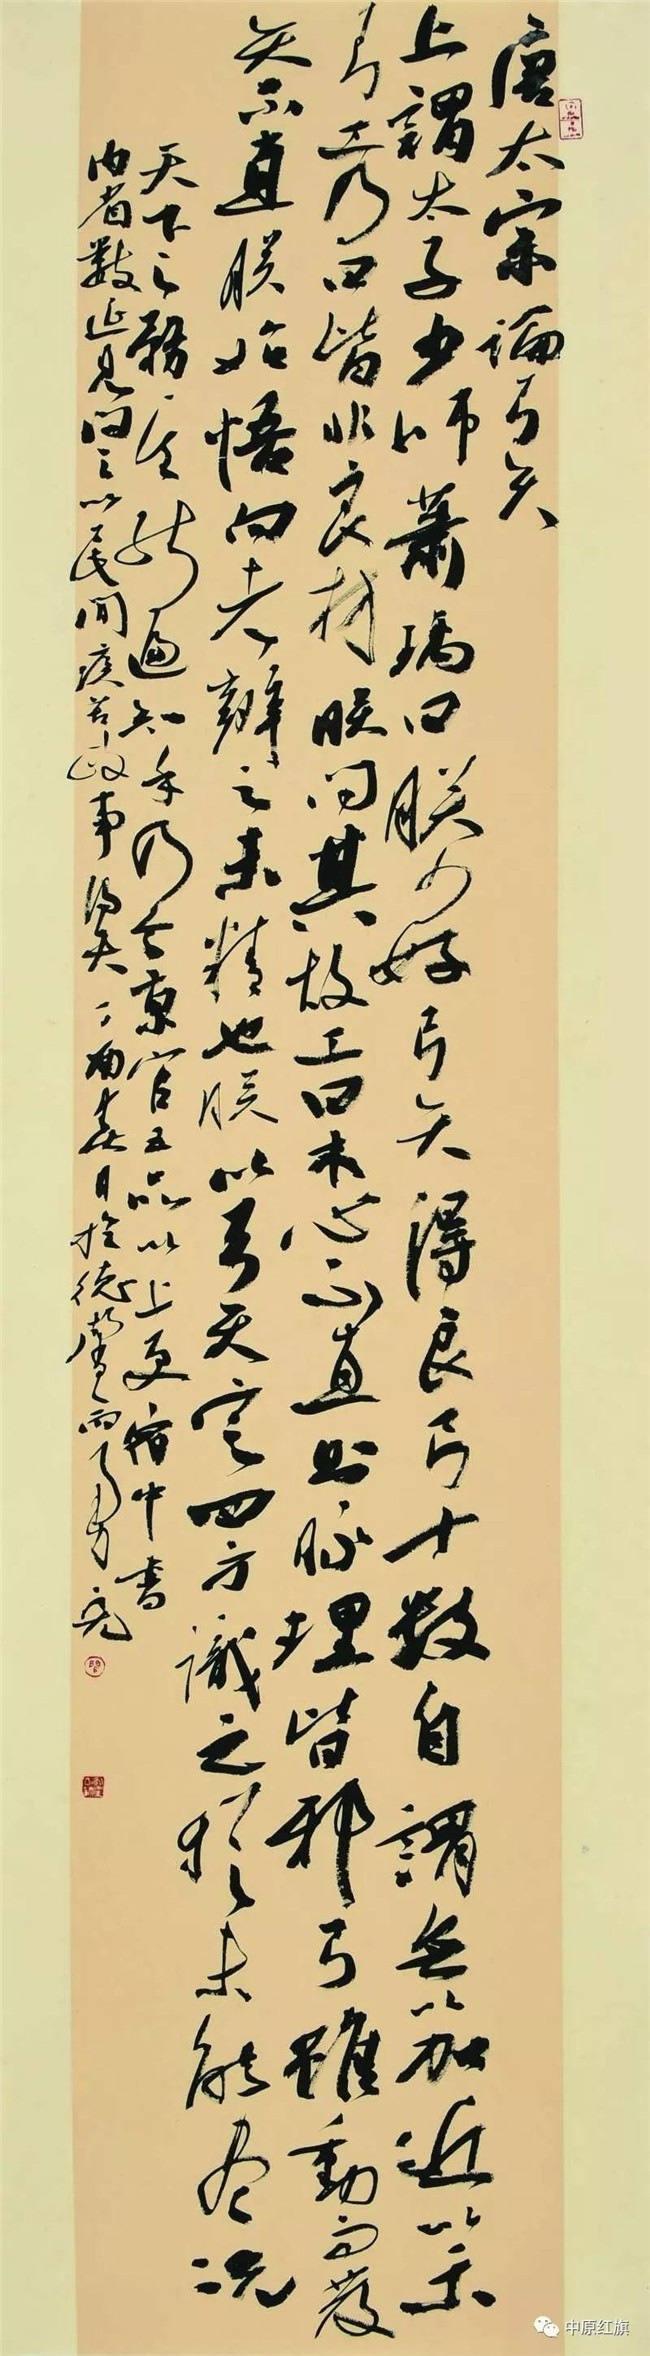 唐太宗論弓矢
上謂太子少師蕭瑀曰朕少好弓矢得良弓十數自謂無以加近以示
弓工乃曰皆非良材朕問其故工曰木心不直則脉理皆邪弓雖動而發
矢不直朕始悟向者辨之未精也朕以弓矢定四方識之猶未能盡況
天下之務其能遍知乎乃令京官五品以上更宿中書
內省數延見問之以民間疾苦政事得失丁酉春月於德馨
中原红旗